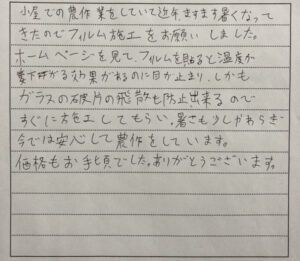 小屋での農作業をしていて近年、ますます暑くなって
きたのでフィルム施工をお願いしました。
ホームページを見て、フィルムを貼ると温度が
下がる効果があるのに目が止まり、しかも
ガラスの破片の飛散も防止出来るので
すぐに施工してもらい、暑さも少しやわらぎ
今では安心して農作をしています。
価格もお手頃でした。ありがとうございます。